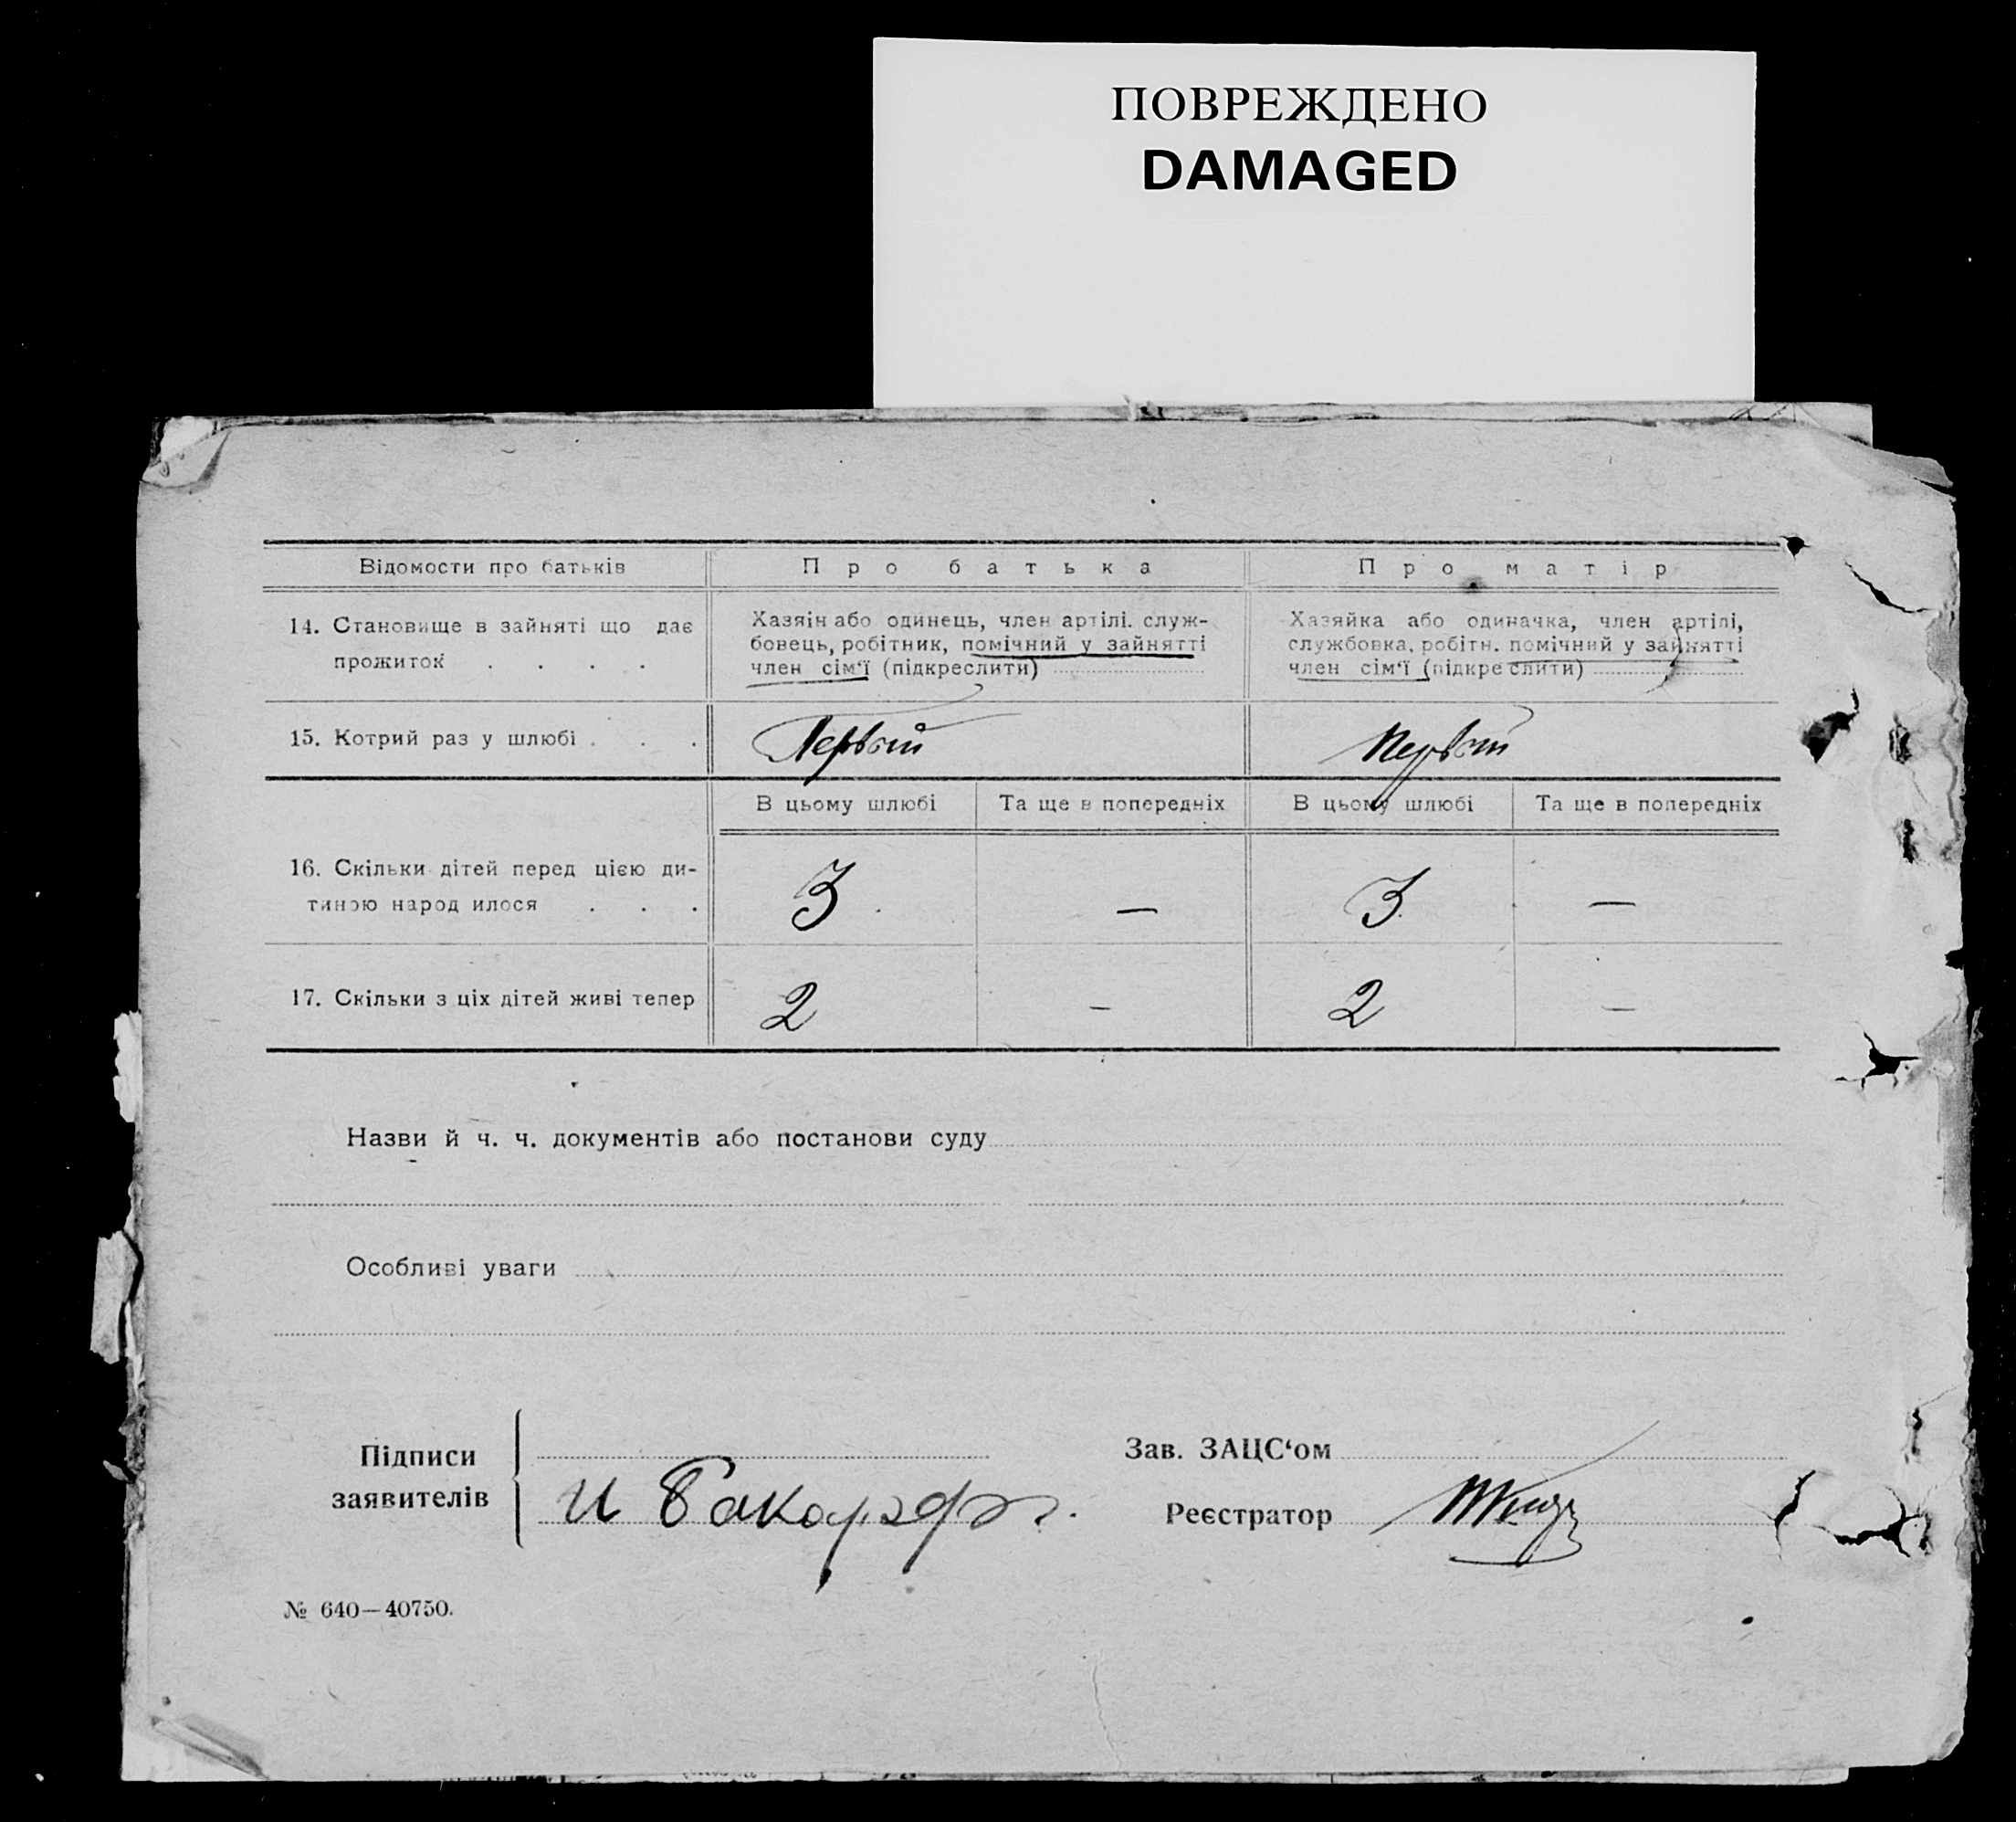 ПОВРЕЖДЕНО
DAMAGED
Відомости про батьків
Про батька
Про матір
14. Становище в зайняті що дає
прожиток . . . .
Хазяїн або одинець, член артілі. служ-
бовець, робітник, помічний у зайнятті
член сім‘ї (підкреслити)
Хазяйка або одиначка, член артілі,
службовка, робітн. помічний у зайнятті
член сім‘ї (підкреслити)
15. Котрий раз у шлюбі . . .
Первый
Первый
В цьому шлюбі
Та ще в попередніх
В цьому шлюбі
Та ще в попередніх
16. Скільки дітей перед цією ди-
тиною народилося . . .
3
—
3
—
17. Скільки з ціх дітей живі тепер
2
—
2
—
Назви й ч. ч. документів або постанови суду
Особливі уваги
Підписи
заявителів
И
Зав. ЗАЦС‘ом
Реєстратор
№ 640—40750.